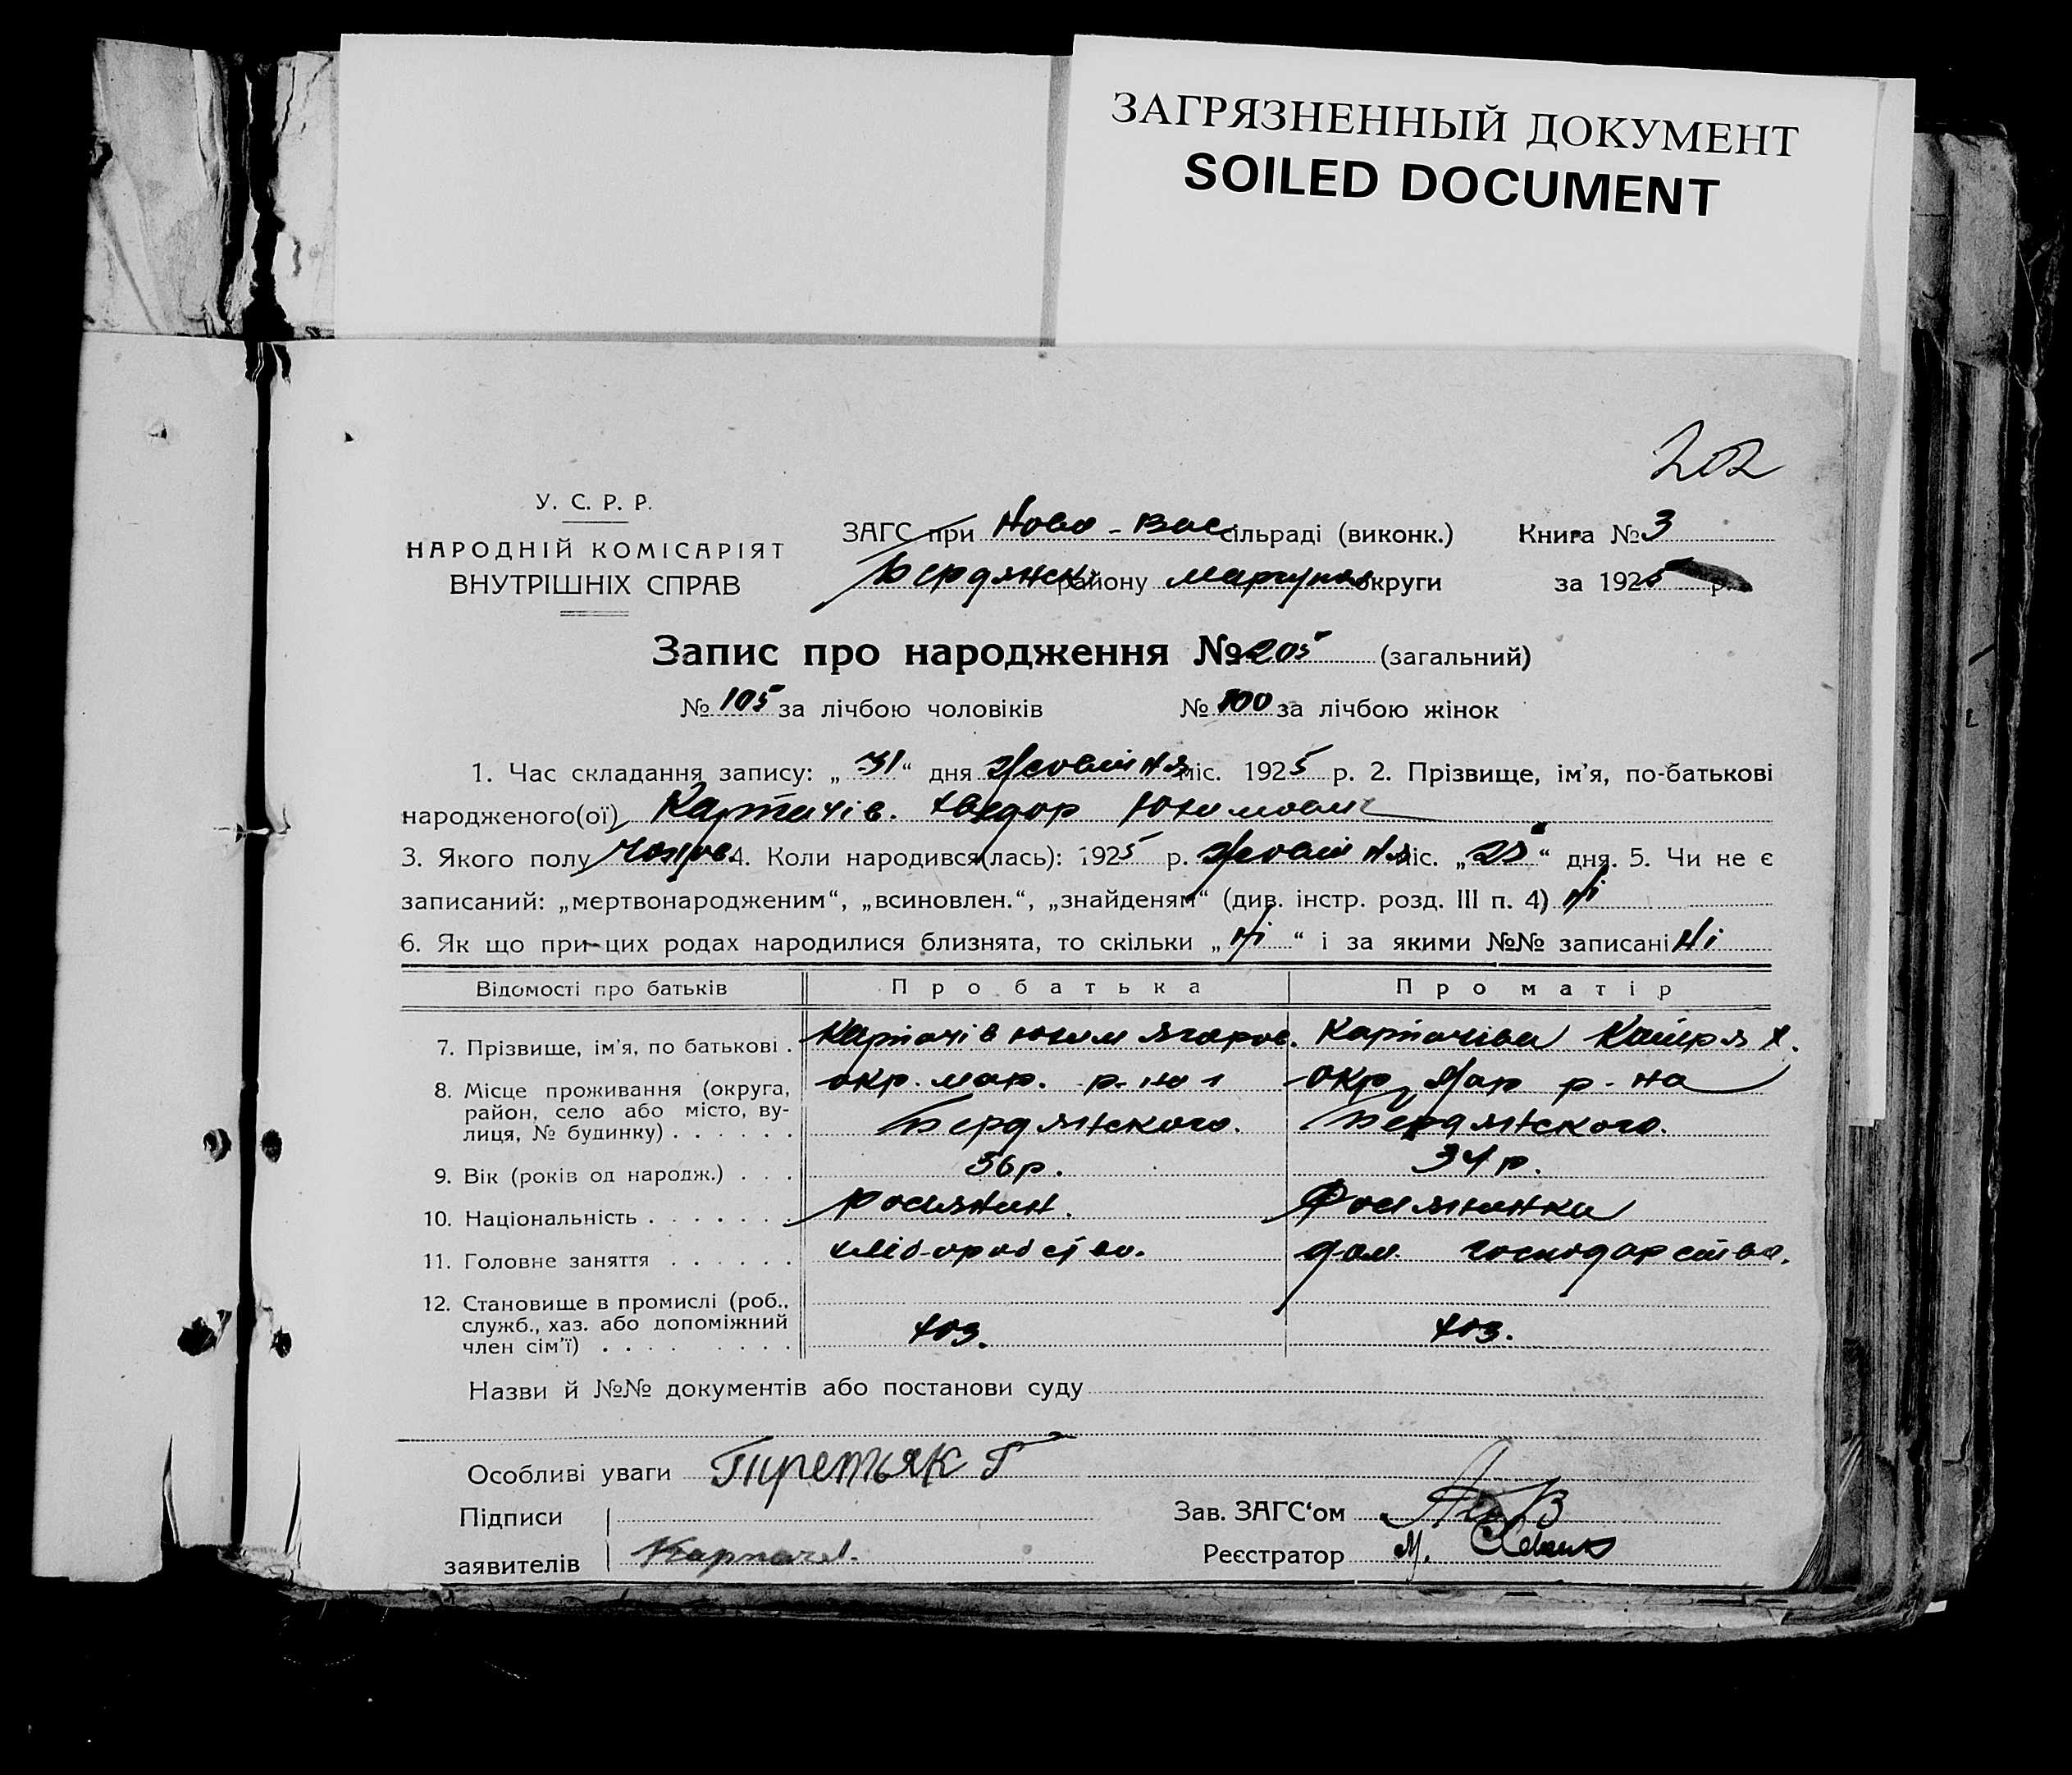 ЗАГРЯЗНЕННЫЙ ДОКУМЕНТ
SOILED DOCUMENT
202
У. С. Р. Р.
НАРОДНІЙ КОМІСАРІЯТ
ВНУТРІШНІХ СПРАВ
ЗАГС при Ново-Вас сільраді (виконк.) Книга № 3
Бердянськ району Маріупол округи за 1925 р.
Запис про народження № 205 (загальний)
№ 105 за лічбою чоловіків № 100 за лічбою жінок
1. Час складання запису: „31“ дня Жовтня міс. 1925 р. 2. Прізвище, ім’я, по-батькові
народженого(ої) Карпачів. Хведор Юхимович
3. Якого полу Чолов. 4. Коли народився(лась): 1925 р. Жовтня міс. „25“ дня. 5. Чи не є
записаний: „мертвонародженим“, „всиновлен.“, „знайденям“ (див. інстр. розд. III п. 4) ні
6. Як що при цих родах народилися близнята, то скільки „ні“ і за якими №№ записані ні
Відомості про батьків Про батька Про матір
7. Прізвище, ім’я, по батькові . Карпачів Юхим Карпачіва
8. Місце проживання (округа, окр. мар. р-на окр. Мар р-на
район, село або місто, ву-
лиця, № будинку) . . . . . . Бердянского. Бердянского.
9. Вік (років од народж.) . . . 36 р. 34 р.
10. Національність . . . . . . . росиянин. Росиянинка
11. Головне заняття . . . . . . хліборобство. дом. господарства.
12. Становище в промислі (роб.,
служб., хаз. або допоміжний хоз. хоз.
член сім’ї) . . . . . . . . .
Назви й №№ документів або постанови суду
Особливі уваги Тиретьяк Г
Підписи Зав. ЗАГС‘ом
заявителів Карпачев. Реєстратор М.